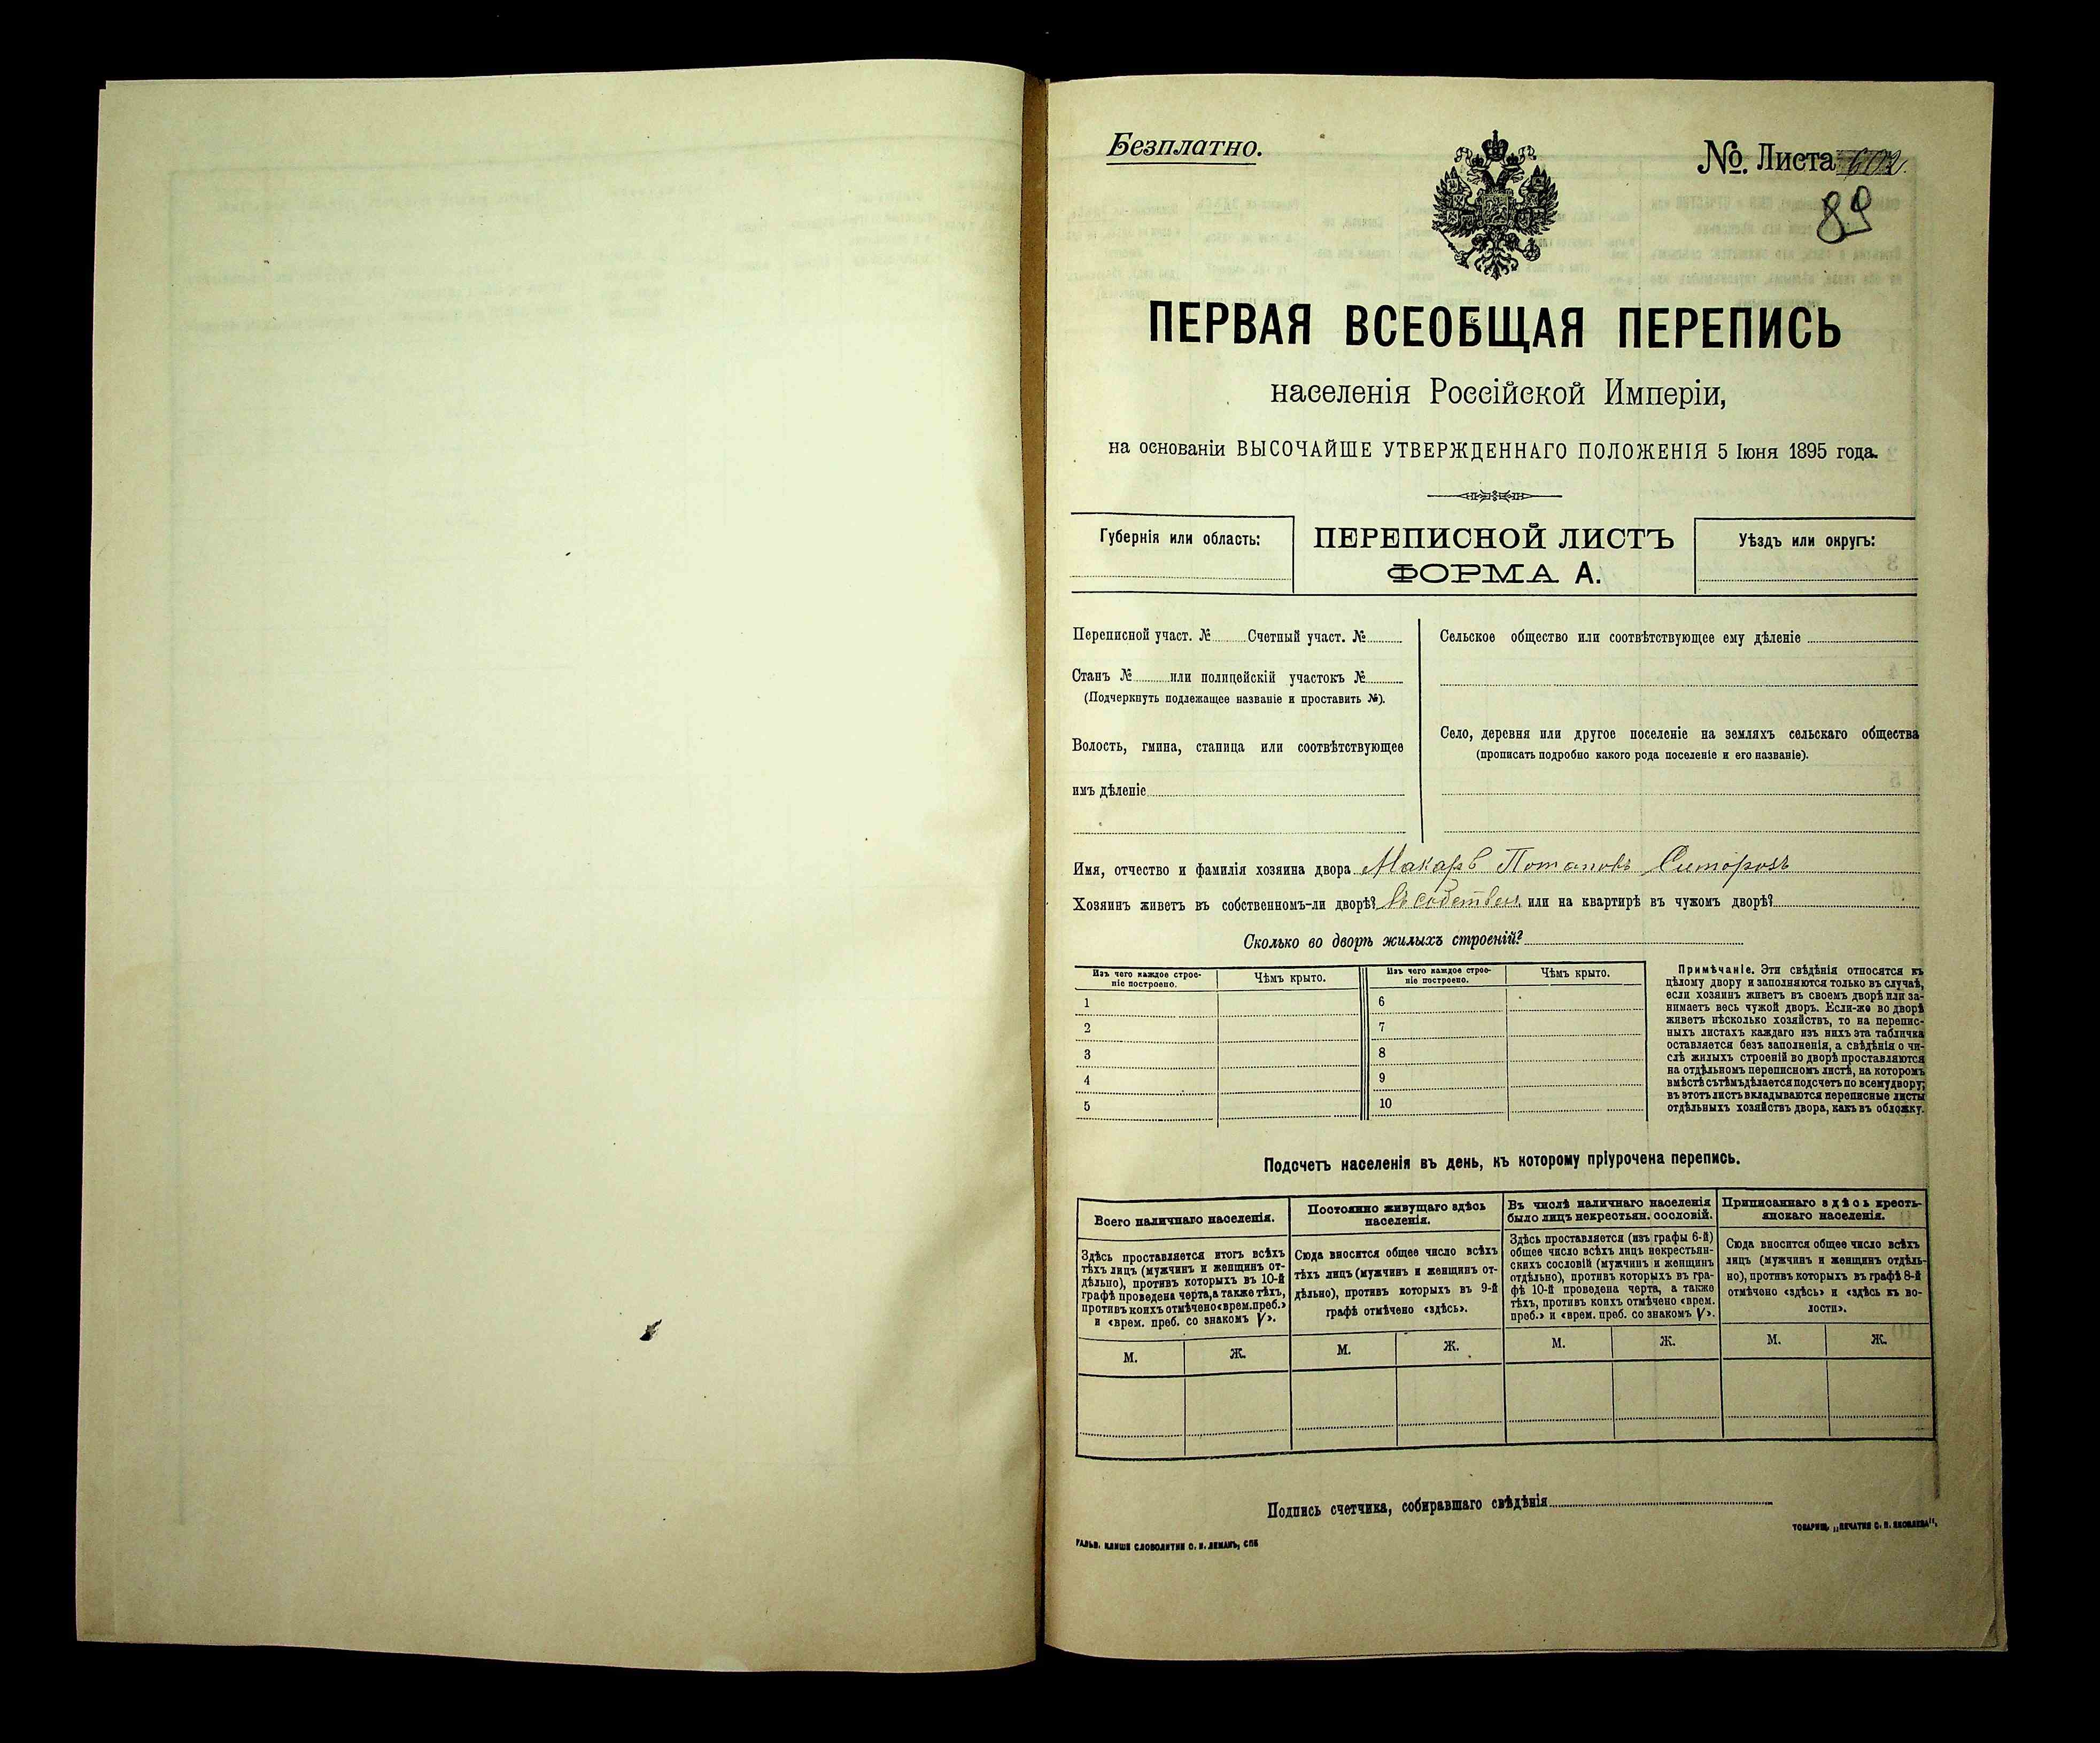 Безплатно.
№. Листа 602.
89
ПЕРВАЯ ВСЕОБЩАЯ ПЕРЕПИСЬ
населенія Россійской Имперіи,
на основаніи ВЫСОЧАЙШЕ УТВЕРЖДЕННАГО ПОЛОЖЕНІЯ 5 Іюня 1895 года.
Губернія или область:
ПЕРЕПИСНОЙ ЛИСТЪ
ФОРМА А.
Уѣздъ или округъ:
Переписной участ. № Счетный участ. №
Станъ № или полицейскій участокъ №
(Подчеркнуть подлежащее названіе и проставить №).
Волость, гмина, станица или соотвѣтствующее
имъ дѣленіе
Сельское общество или соотвѣтствующее ему дѣленіе
Село, деревня или другое поселеніе на земляхъ сельскаго общества
(прописать подробно какого рода поселеніе и его названіе).
Имя, отчество и фамилія хозяина двора Макаръ Потаповъ Ситоровъ
Хозяинъ живетъ въ собственномъ-ли дворѣ? въ собствен. или на квартирѣ въ чужомъ дворѣ?
Сколько во дворѣ жилыхъ строеній?
Изъ чего каждое строе-
ніе построено.
Чѣмъ крыто.
Изъ чего каждое строе-
ніе построено.
Чѣмъ крыто.
1
2
3
4
5
6
7
8
9
10
Примѣчаніе. Эти свѣдѣнія относятся къ
цѣлому двору и заполняются только въ случаѣ,
если хозяинъ живетъ въ своемъ дворѣ или за-
нимаетъ весь чужой дворъ. Если-же во дворѣ
живетъ нѣсколько хозяйствъ, то на перепис-
ныхъ листахъ каждаго изъ нихъ эта табличка
оставляется безъ заполненія, а свѣдѣнія о чи-
слѣ жилыхъ строеній во дворѣ проставляются
на отдѣльномъ переписномъ листѣ, на которомъ
вмѣстѣ съ тѣмъ дѣлается подсчетъ по всему двору;
въ этотъ листъ вкладываются переписные листы
отдѣльныхъ хозяйствъ двора, какъ въ обложку.
Подсчетъ населенія въ день, къ которому пріурочена перепись.
Всего наличнаго населенія.
Здѣсь проставляется итогъ всѣхъ
тѣхъ лицъ (мужчинъ и женщинъ от-
дѣльно), противъ которыхъ въ 10-й
графѣ проведена черта, а также тѣхъ,
противъ коихъ отмѣчено «врем. преб.»
и «врем. преб. со знакомъ V».
М.
Ж.
Постоянно живущаго здѣсь
населенія.
Сюда вносится общее число всѣхъ
тѣхъ лицъ (мужчинъ и женщинъ от-
дѣльно), противъ которыхъ въ 9-й
графѣ отмѣчено «здѣсь».
М.
Ж.
Въ числѣ наличнаго населенія
было лицъ некрестьян. сословій.
Здѣсь проставляется (изъ графы 6-й)
общее число всѣхъ лицъ некрестьян-
скихъ сословій (мужчинъ и женщинъ
отдѣльно), противъ которыхъ въ гра-
фѣ 10-й проведена черта, а также
тѣхъ, противъ коихъ отмѣчено «врем.
преб.» и «врем. преб. со знакомъ V».
М.
Ж.
Приписаннаго здѣсь кресть-
янскаго населенія.
Сюда вносится общее число всѣхъ
лицъ (мужчинъ и женщинъ отдѣль-
но), противъ которыхъ въ графѣ 8-й
отмѣчено «здѣсь» и «здѣсь къ во-
лости».
М.
Ж.
Подпись счетчика, собиравшаго свѣдѣнія
ГАЛЬВ. КЛИШЕ СЛОВОЛИТНИ О. И. ЛЕМАНЪ, СПБ
ТОВАРИЩ. „ПЕЧАТНЯ С. П. ЯКОВЛЕВА“.